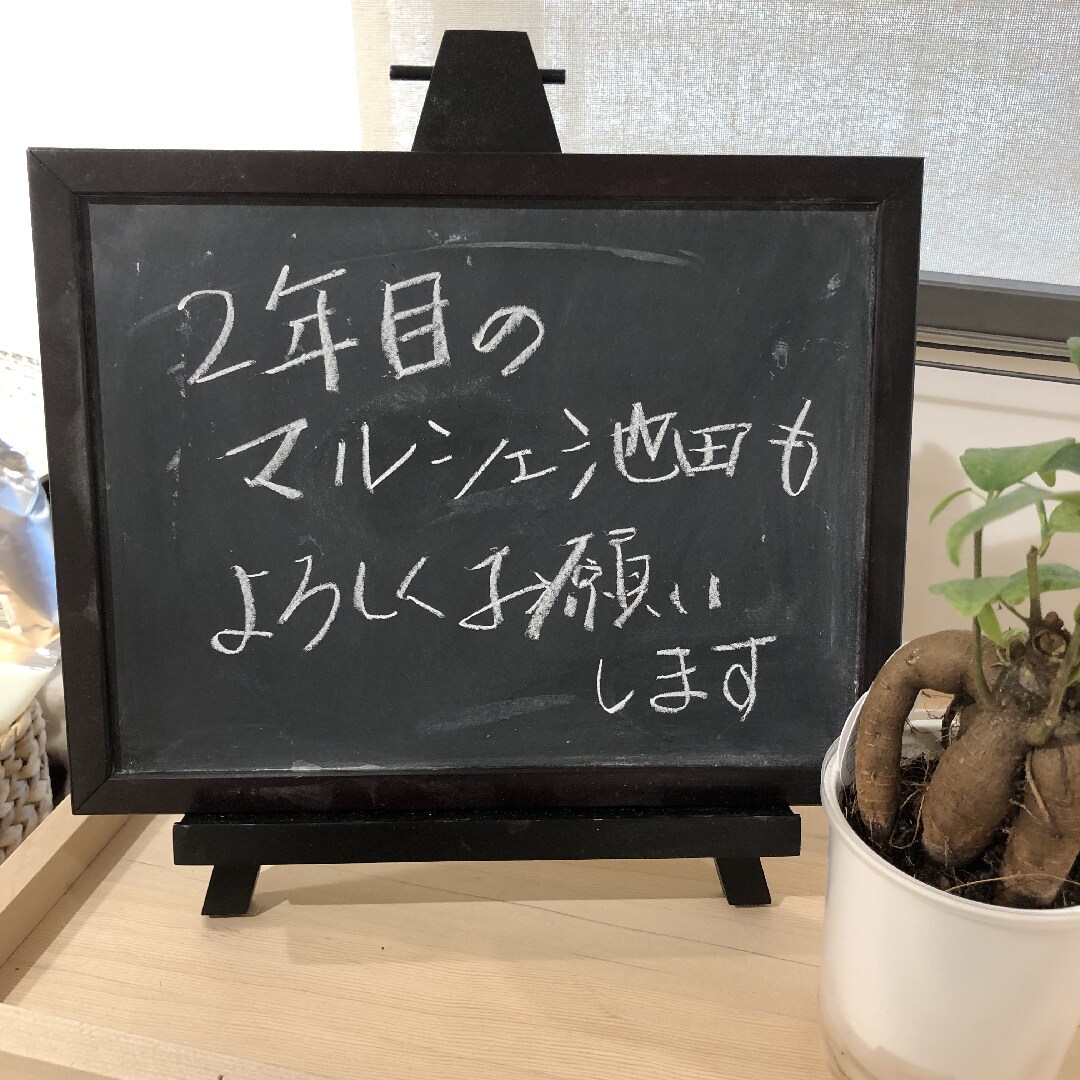 2年目の
マルシェ池田も
よろしくお願い
します